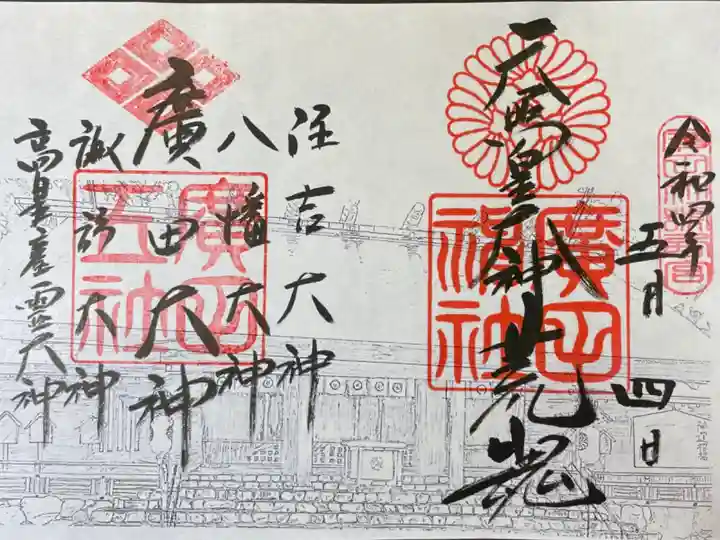 令和四年
五月
四日
天照皇大神
荒魂
廣田
神社
住吉大神
八幡大神
廣田大神
諏訪大神
高皇産霊大神
廣田
五社